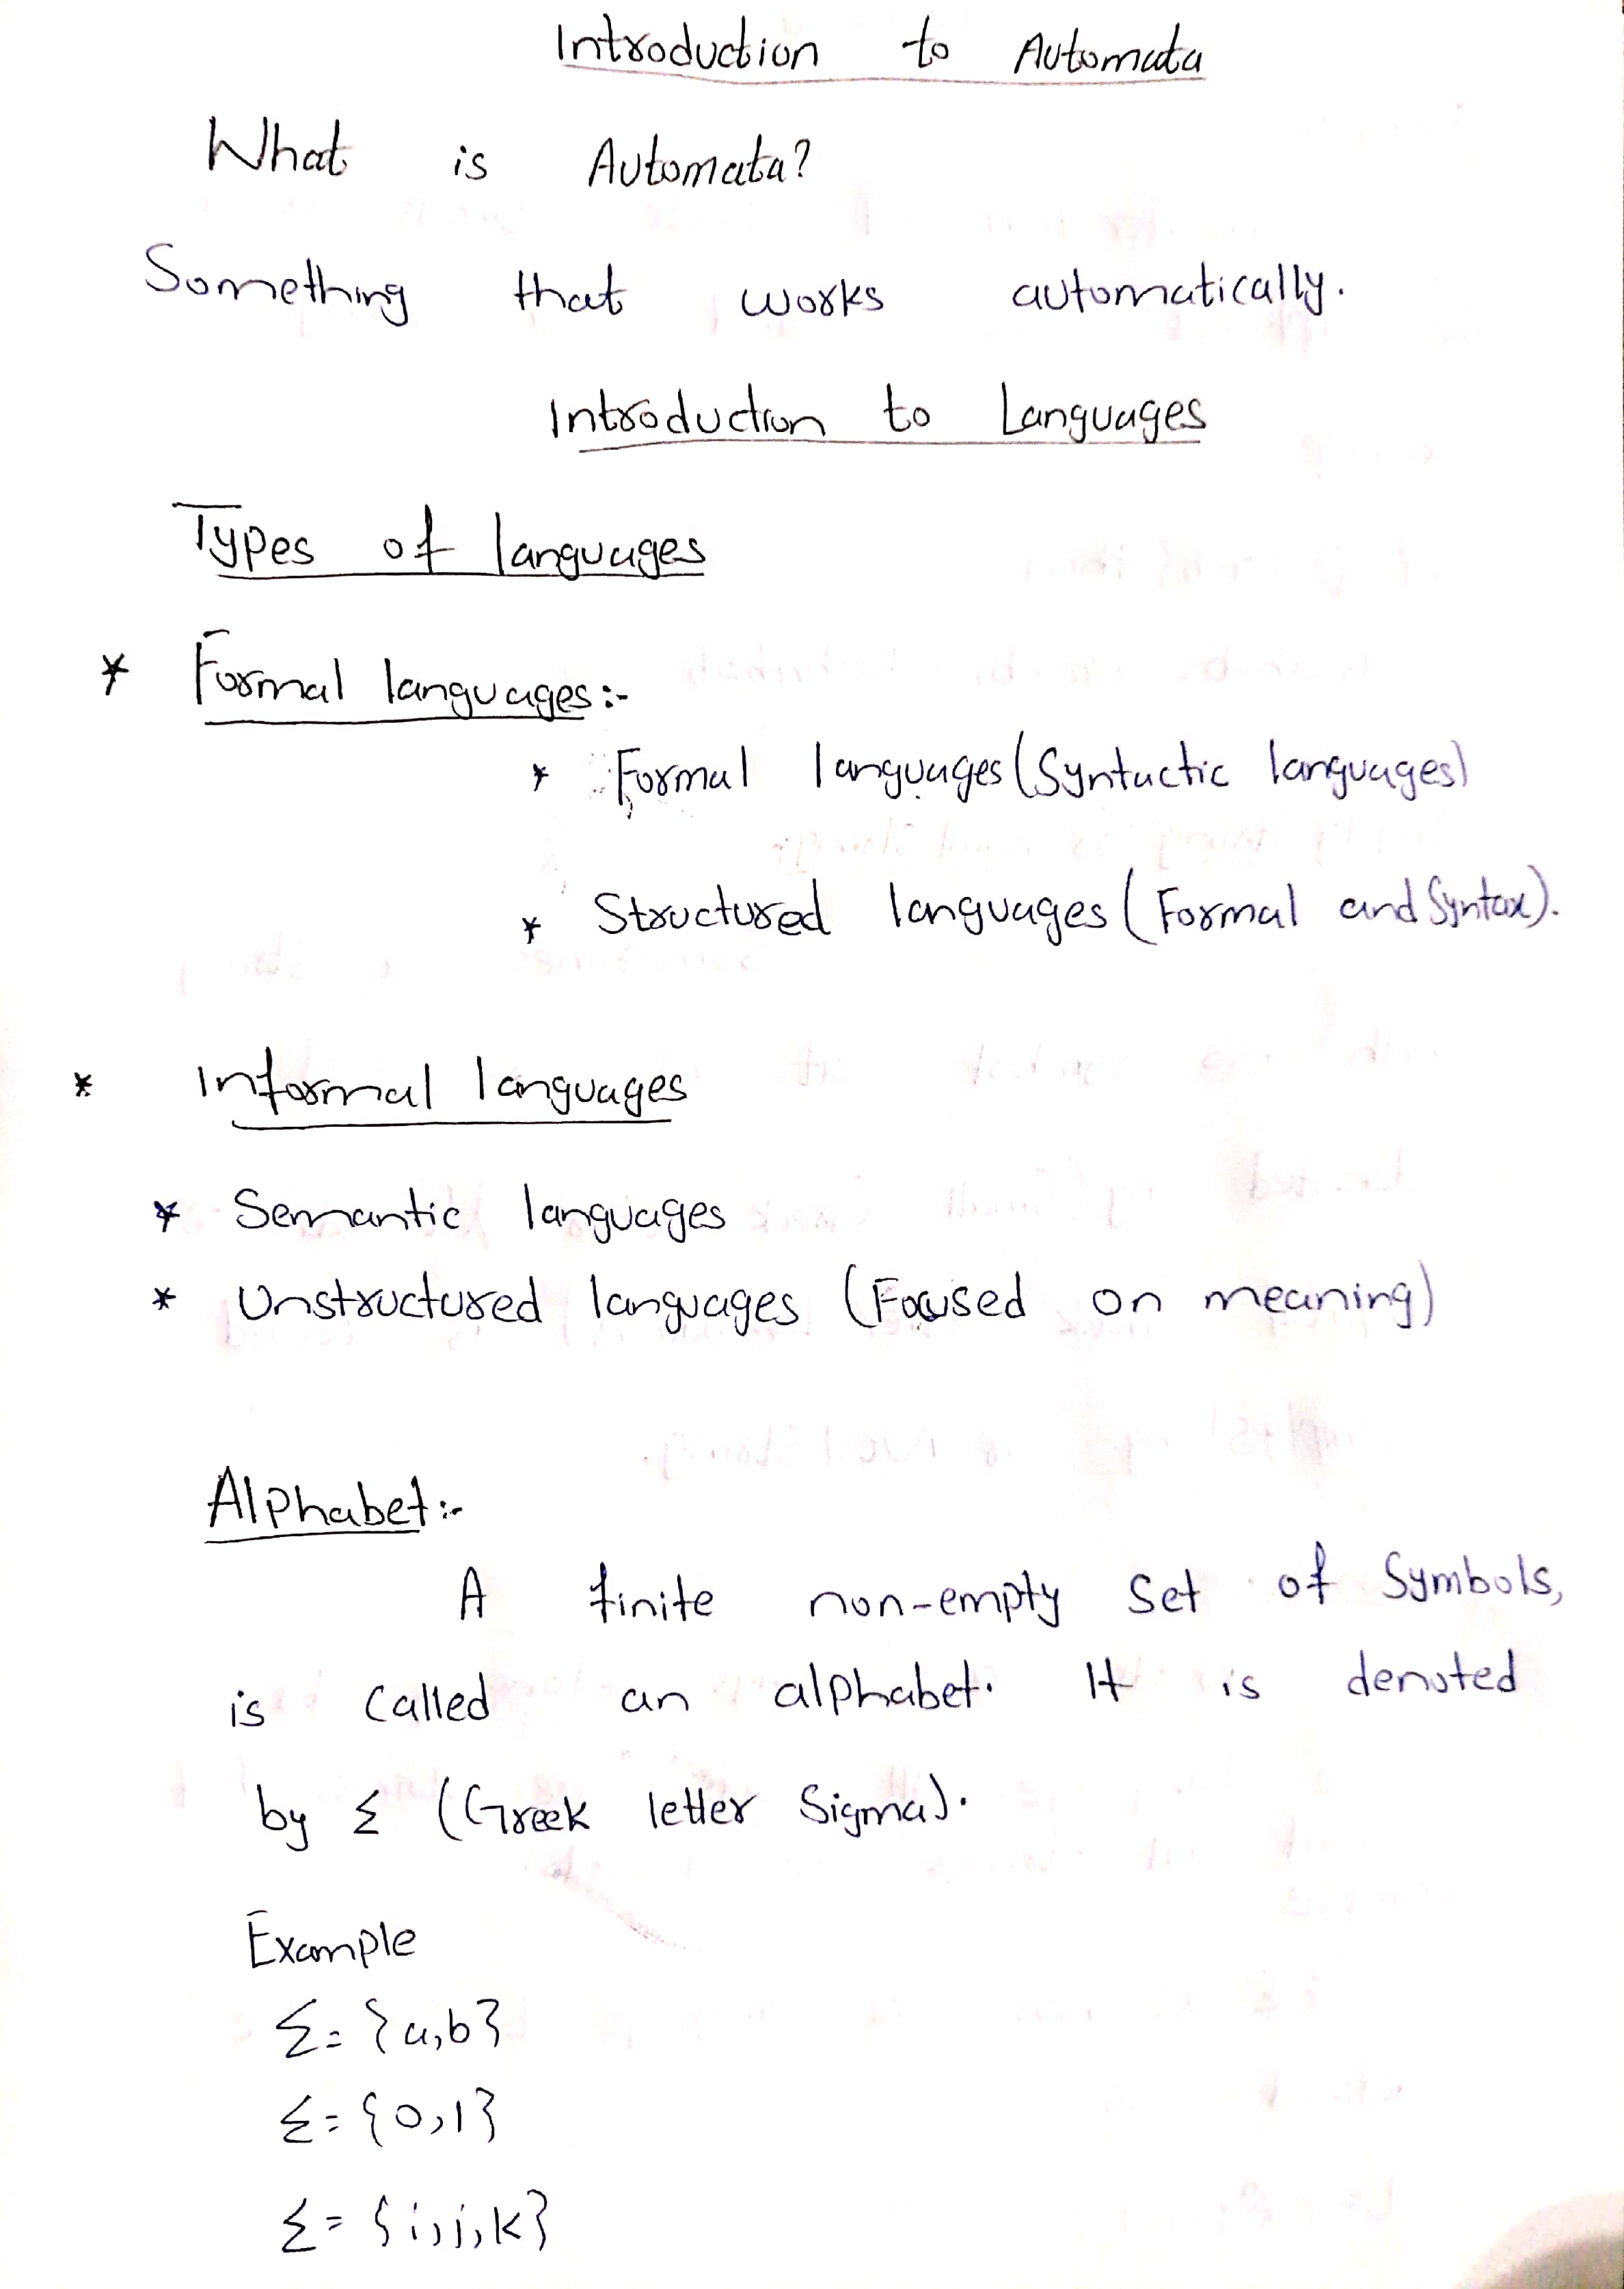 Introduction to Automata
What is Automata?
Something that works automatically.
Introduction to Languages
Types of languages
* Formal languages:-
* Formal languages (Syntactic languages)
* Structured languages (Formal and Syntax).
* Informal languages
* Semantic languages
* Unstructured languages (Focused on meaning)
Alphabet:-
A finite non-empty set of Symbols,
is called an alphabet. It is denoted
by Σ (Greek letter Sigma).
Example
Σ = {a,b}
Σ = {0,1}
Σ = {i,j,k}